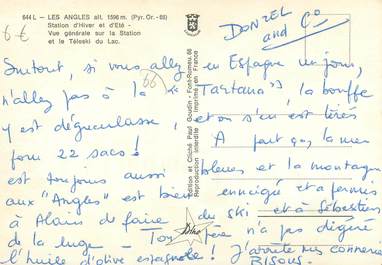 644 L - LES ANGLES alt. 1596 m. (Pyr. Or. - 66)
Station d'Hiver et d'Eté -
Vue générale sur la Station
et le Téleski du Lac.
6 €
DONZEL
and Co
66
Edition et Cliché Paul Goudin - Font-Romeu 66
Reproduction interdite Imprimé en France
Surtout, si vous allez en Espagne un jour,
n'allez pas à la "Tartana", la bouffe
y est dégueulasse, et on s'en est tirés
pour 22 sacs ! A part ça, la mer
est toujours aussi bleue et la montagne
aux "Angles" est bien enneigée et a permis
à Alain de faire du ski et à Sébastien
de la luge - Ton père n'a pas digéré
l'huile d'olive espagnole ! J'arrête mes conneries
BISOUS